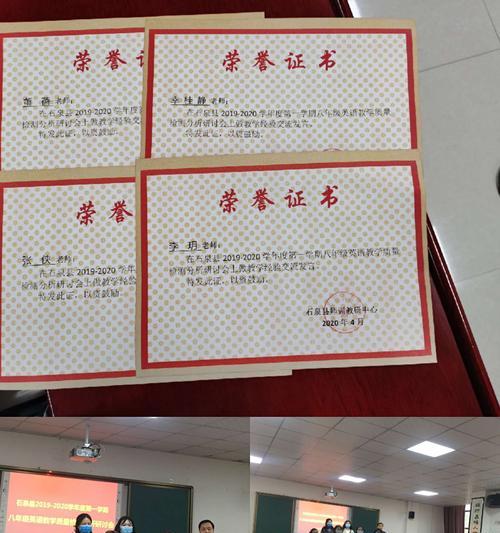 荣誉证书
董蓓老师：
在石泉县2019-2020学年度
检测分析研讨会上做教学经
特发此证，以资鼓励。
荣誉证书
辛桂静老师：
在石泉县2019-2020学年度第一学期八年级英语教学质量
检测分析研讨会上做教学经验交流发言。
特发此证，以资鼓励。
荣誉
张侠老师：
在石泉县2019-2020学年
检测分析研讨会上做教学经验
特发此证，以资鼓励。
荣誉证书
李玥老师：
在石泉县2019-2020学年度第一学期八年级英语教学质量
检测分析研讨会上做教学经验交流发言。
特发此证，以资鼓励。
石泉县师训教研中心
2020年4月
石泉县2019-2020学年度第一学期
八年级英语教学质量检测分析研讨会